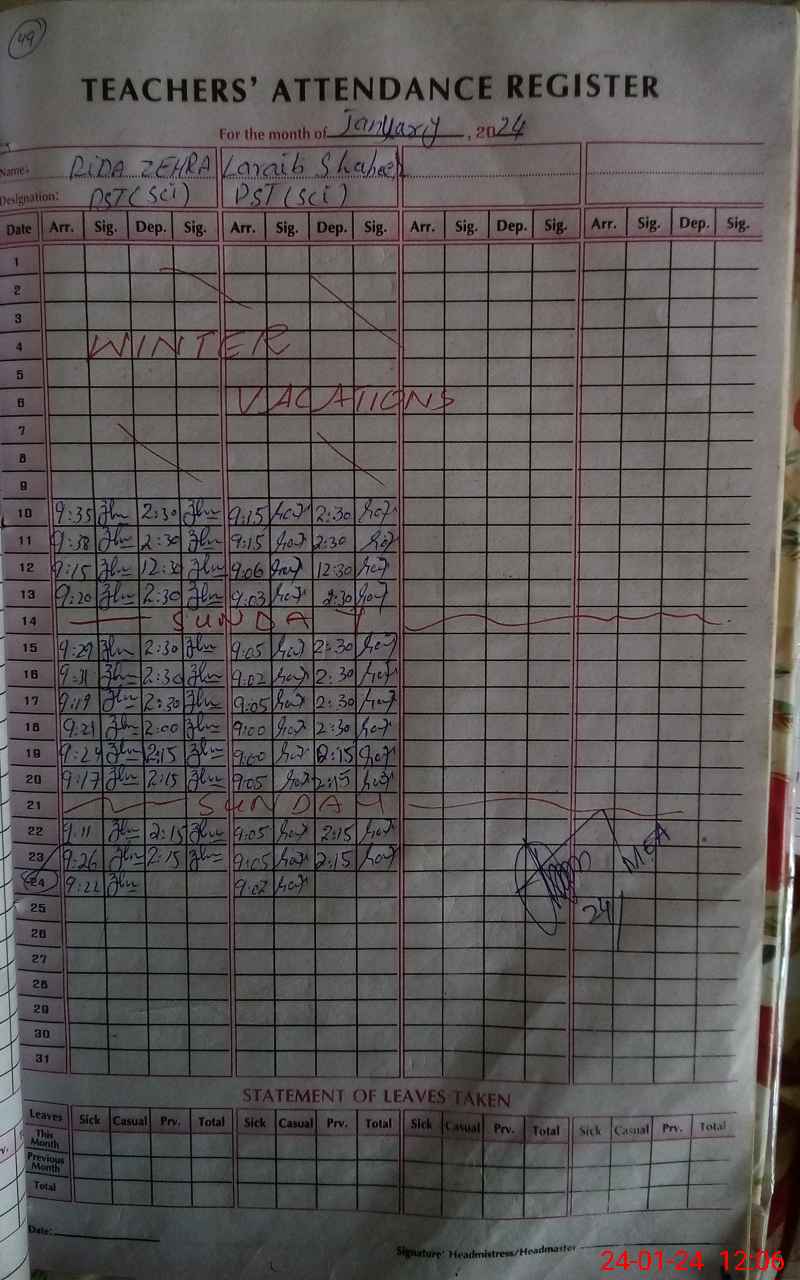 49
TEACHERS' ATTENDANCE REGISTER
For the month of January, 2024
Name: RIDA ZEHRA Laraib Shaheen
Designation: PST (SCI) PST (SCI)
Date Arr. Sig. Dep. Sig. Arr. Sig. Dep. Sig. Arr. Sig. Dep. Sig. Arr. Sig. Dep. Sig.
1
2
3
4 WINTER
5
6 VACATIONS
7
8
9
10 9:35 2:30 9:15 2:30
11 9:38 2:30 9:15 2:30
12 9:15 12:30 9:06 12:30
13 9:20 2:30 9:03 2:30
14 SUNDAY
15 9:29 2:30 9:05 2:30
16 9:31 2:30 9:02 2:30
17 9:19 2:30 9:05 2:30
18 9:21 2:00 9:00 2:30
19 9:24 2:15 9:00 2:15
20 9:17 2:15 9:05 2:15
21 SUNDAY
22 9:11 2:15 9:05 2:15
23 9:26 2:15 9:05 2:15 MEA
24 9:22 9:02
25 24/
26
27
28
29
30
31
STATEMENT OF LEAVES TAKEN
Leaves Sick Casual Prv. Total Sick Casual Prv. Total Sick Casual Prv. Total Sick Casual Prv. Total
This Month
Previous Month
Total
Date:
Signature: Headmistress/Headmaster
24-01-24 12:06